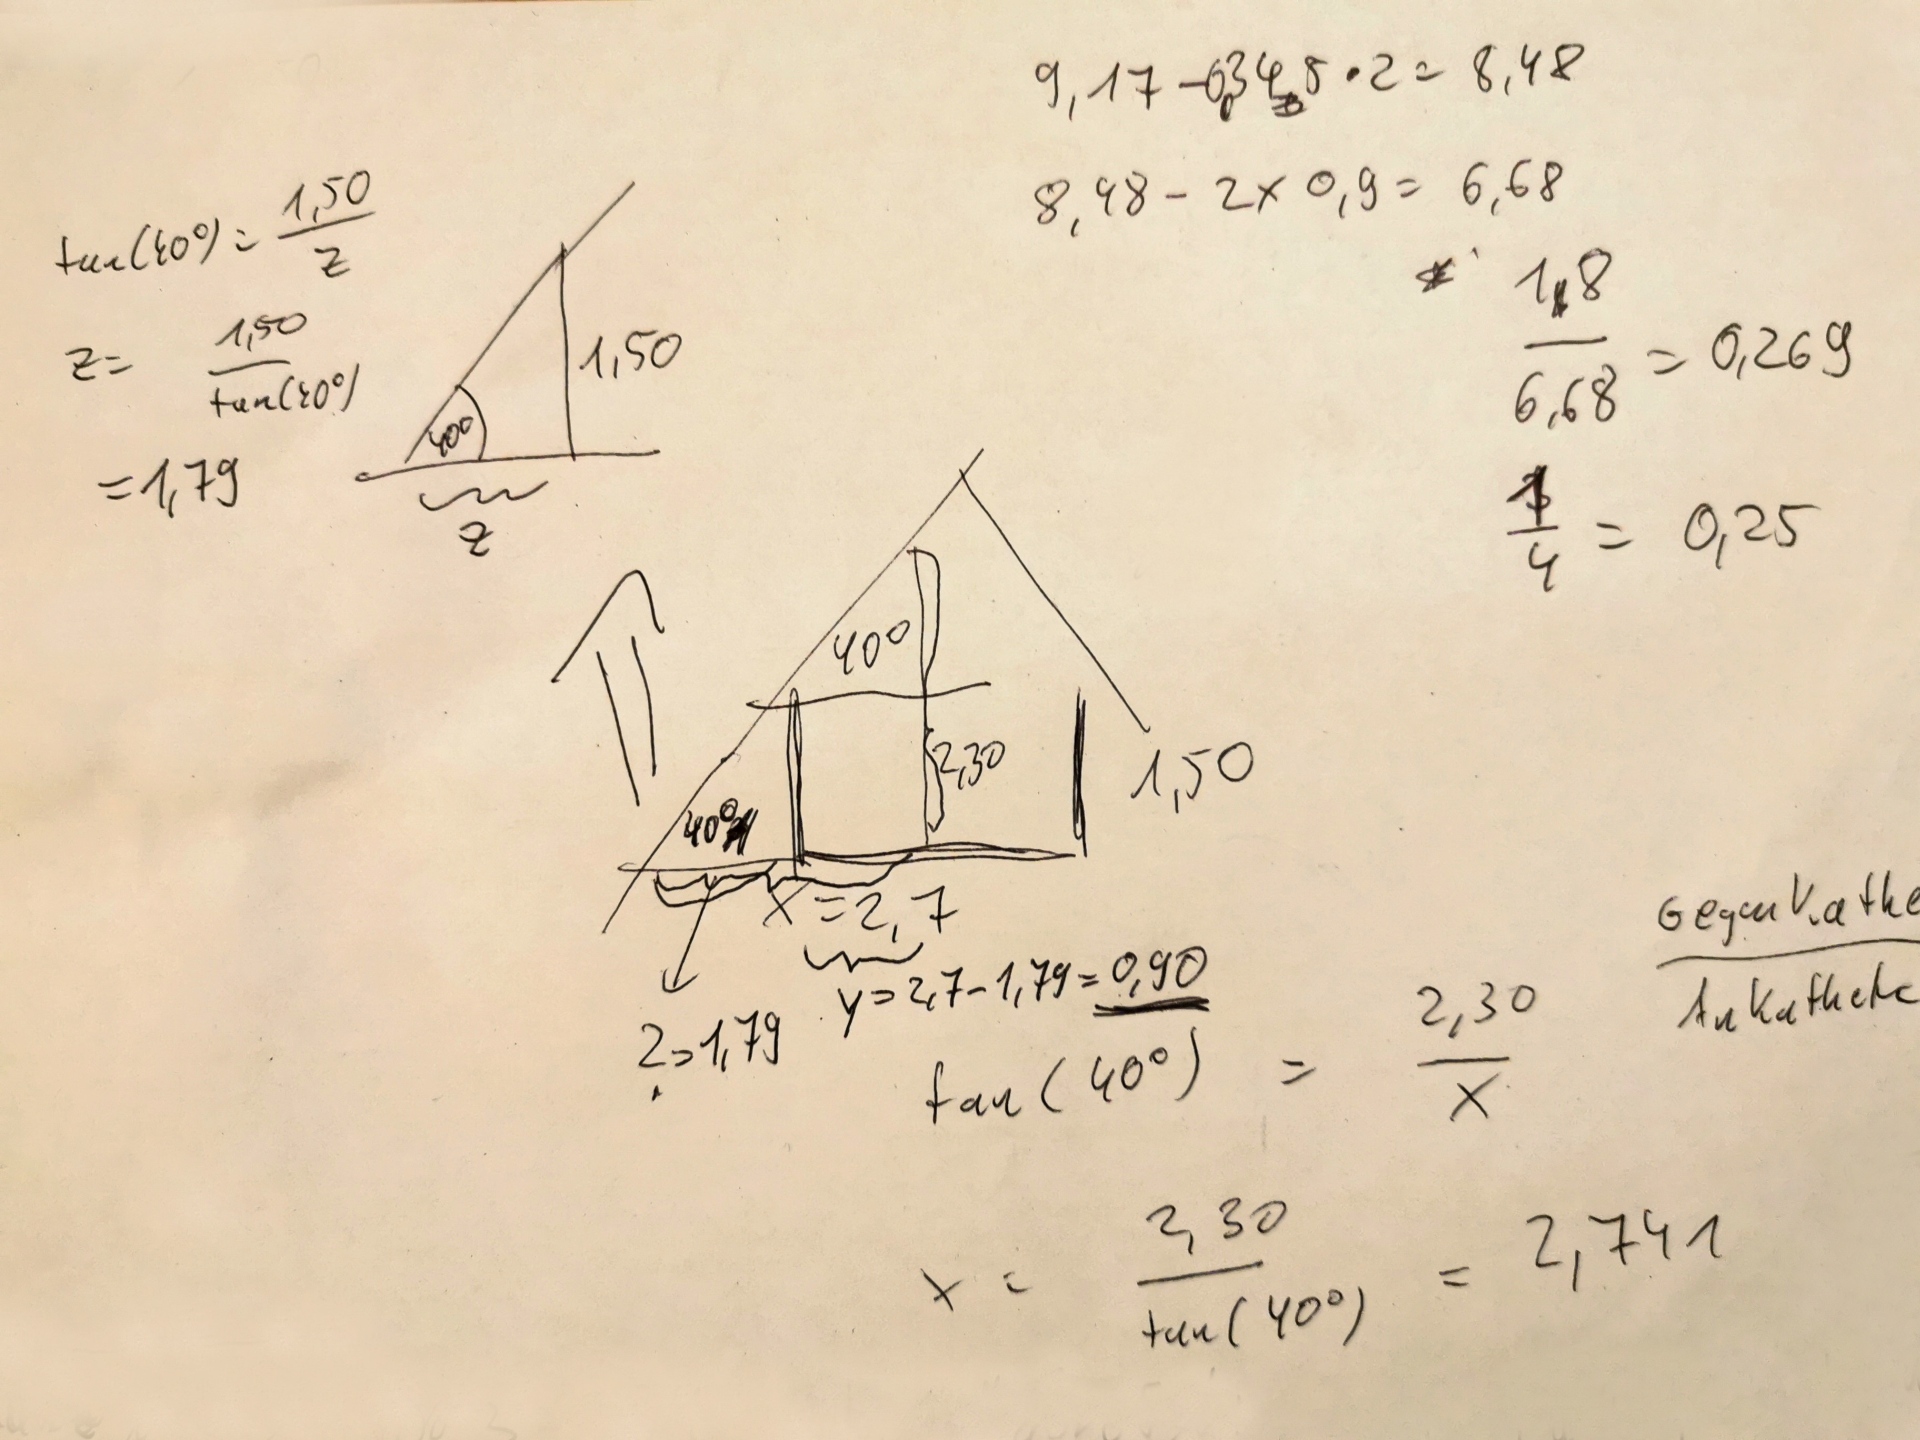 9,17 - 0,345 · 2 = 8,48
8,48 - 2 x 0,9 = 6,68
1,8 / 6,68 = 0,269
1/4 = 0,25
tan(40°) = 1,50 / z
z = 1,50 / tan(40°)
= 1,79
40°
1,50
z
40°
2,30
1,50
40°
x = 2,7
y = 2,7 - 1,79 = 0,90
z = 1,79
Gegenkathe
Ankathete
tan(40°) = 2,30 / x
x = 2,30 / tan(40°) = 2,741